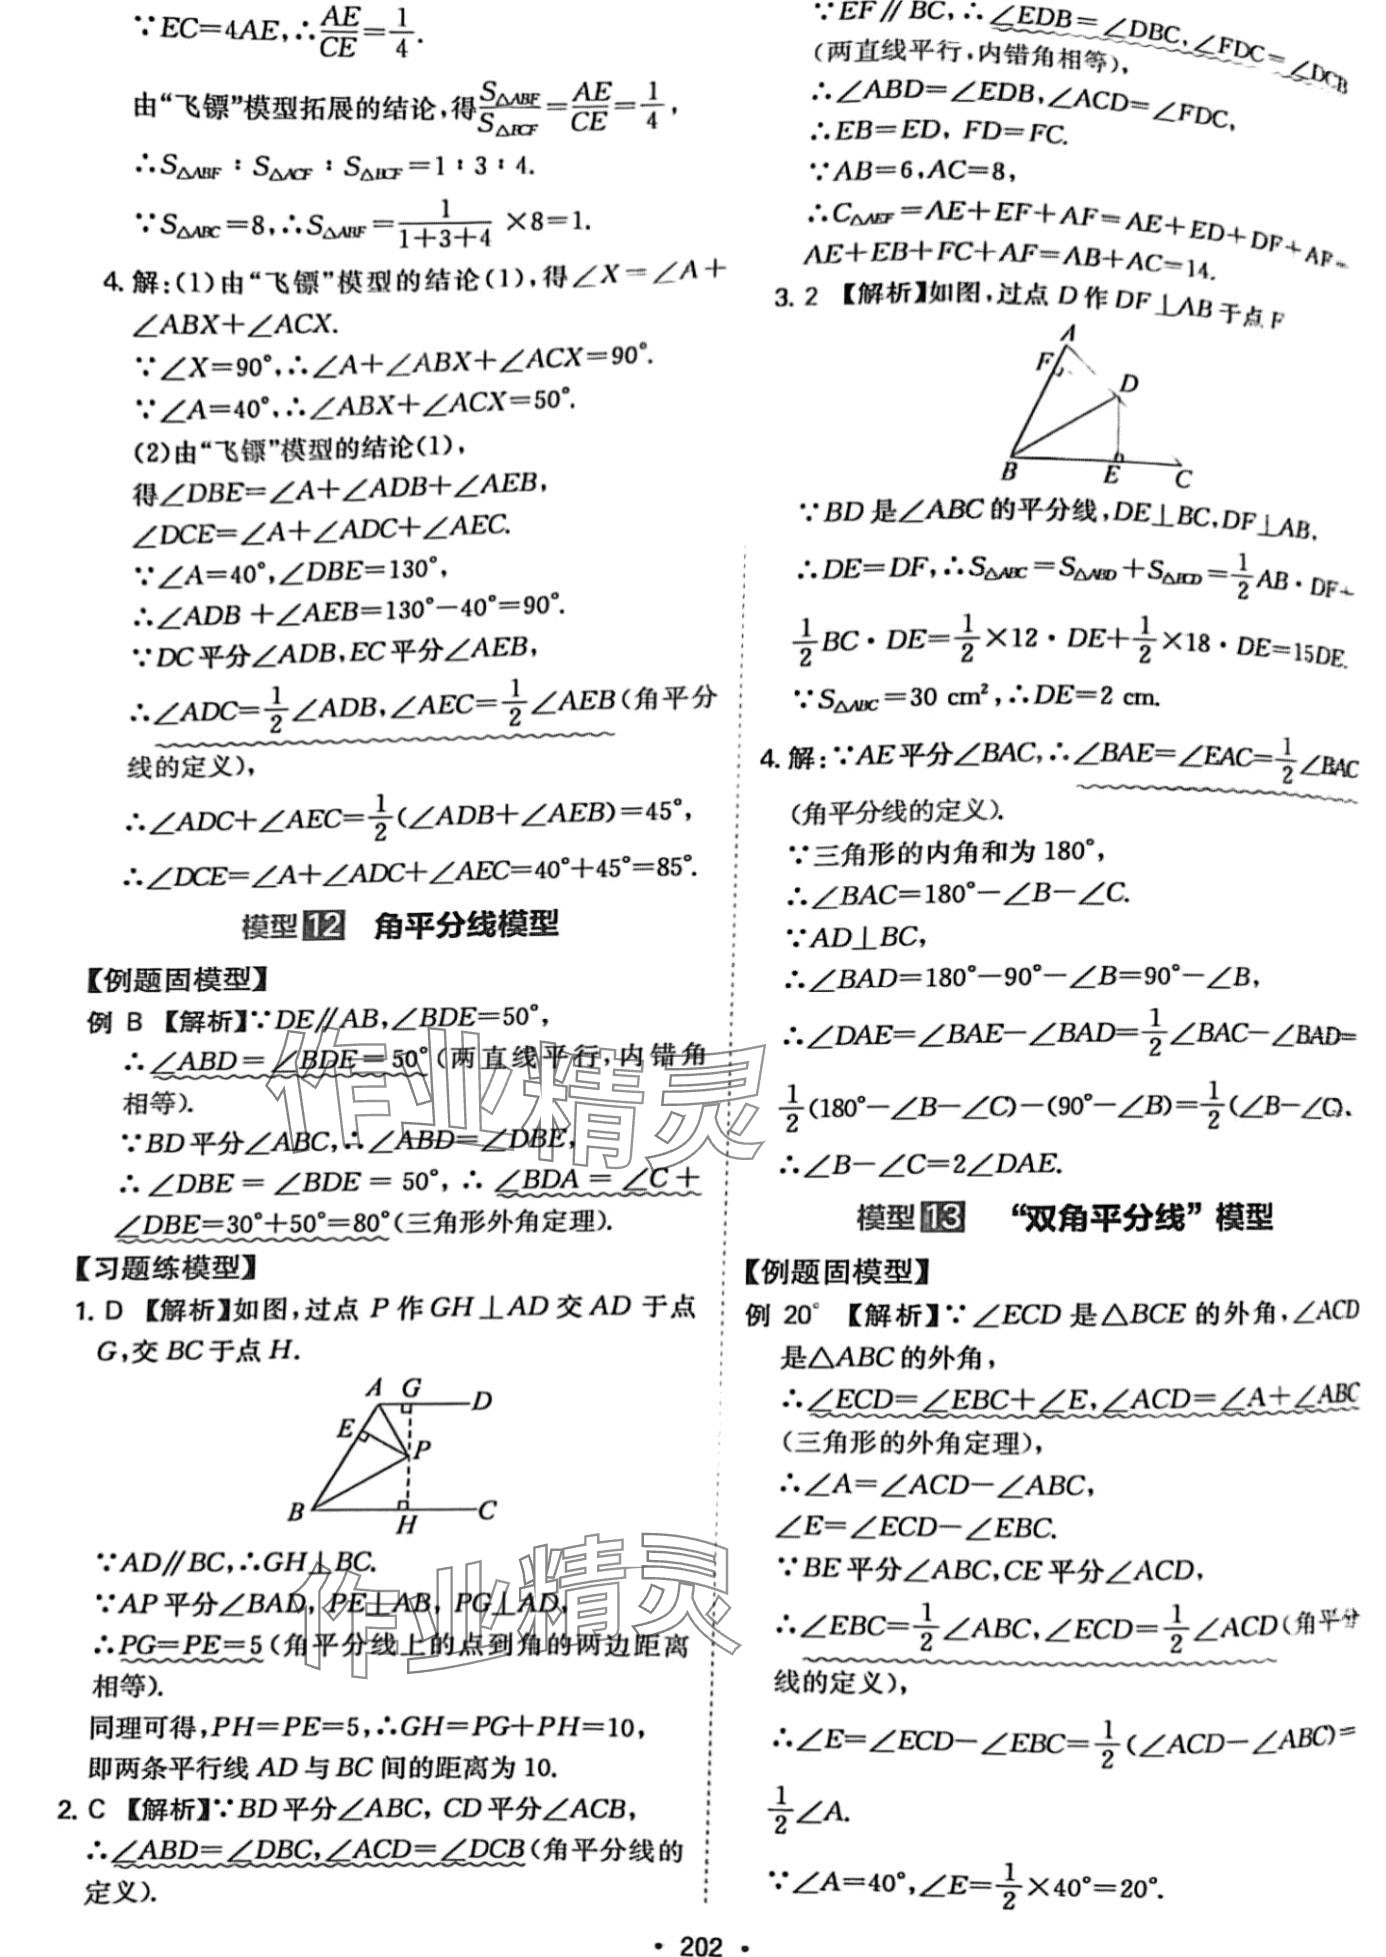 ∵EC=4AE,∴AE/CE=1/4.
由“飞镖”模型拓展的结论,得S△ABF/S△BCF=AE/CE=1/4,
∴S△ABF∶S△ACF∶S△BCF=1∶3∶4.
∵S△ABC=8,∴S△ABF=1/(1+3+4)×8=1.
4. 解:(1)由“飞镖”模型的结论(1),得∠X=∠A+
∠ABX+∠ACX.
∵∠X=90°,∴∠A+∠ABX+∠ACX=90°.
∵∠A=40°,∴∠ABX+∠ACX=50°.
(2)由“飞镖”模型的结论(1),
得∠DBE=∠A+∠ADB+∠AEB,
∠DCE=∠A+∠ADC+∠AEC.
∵∠A=40°,∠DBE=130°,
∴∠ADB+∠AEB=130°-40°=90°.
∵DC平分∠ADB,EC平分∠AEB,
∴∠ADC=1/2∠ADB,∠AEC=1/2∠AEB(角平分
线的定义),
∴∠ADC+∠AEC=1/2(∠ADB+∠AEB)=45°,
∴∠DCE=∠A+∠ADC+∠AEC=40°+45°=85°.
模型12 角平分线模型
【例题固模型】
例 B 【解析】∵DE∥AB,∠BDE=50°,
∴∠ABD=∠BDE=50°(两直线平行,内错角
相等).
∵BD平分∠ABC,∴∠ABD=∠DBE,
∴∠DBE=∠BDE=50°,∴∠BDA=∠C+
∠DBE=30°+50°=80°(三角形外角定理).
【习题练模型】
1. D 【解析】如图,过点P作GH⊥AD交AD于点
G,交BC于点H.
A G D
E
P
B H C
∵AD∥BC,∴GH⊥BC.
∵AP平分∠BAD,PE⊥AB,PG⊥AD,
∴PG=PE=5(角平分线上的点到角的两边距离
相等).
同理可得,PH=PE=5,∴GH=PG+PH=10,
即两条平行线AD与BC间的距离为10.
2. C 【解析】∵BD平分∠ABC,CD平分∠ACB,
∴∠ABD=∠DBC,∠ACD=∠DCB(角平分线的
定义).
∵EF∥BC,∴∠EDB=∠DBC,∠FDC=∠DCB
(两直线平行,内错角相等),
∴∠ABD=∠EDB,∠ACD=∠FDC,
∴EB=ED,FD=FC.
∵AB=6,AC=8,
∴C△AEF=AE+EF+AF=AE+ED+DF+AF=
AE+EB+FC+AF=AB+AC=14.
3. 2 【解析】如图,过点D作DF⊥AB于点F
A
F
D
B E C
∵BD是∠ABC的平分线,DE⊥BC,DF⊥AB,
∴DE=DF,∴S△ABC=S△ABD+S△BCD=1/2AB·DF+
1/2BC·DE=1/2×12·DE+1/2×18·DE=15DE.
∵S△ABC=30 cm²,∴DE=2 cm.
4. 解:∵AE平分∠BAC,∴∠BAE=∠EAC=1/2∠BAC
(角平分线的定义).
∵三角形的内角和为180°,
∴∠BAC=180°-∠B-∠C.
∵AD⊥BC,
∴∠BAD=180°-90°-∠B=90°-∠B,
∴∠DAE=∠BAE-∠BAD=1/2∠BAC-∠BAD=
1/2(180°-∠B-∠C)-(90°-∠B)=1/2(∠B-∠C).
∴∠B-∠C=2∠DAE.
模型13 “双角平分线”模型
【例题固模型】
例 20° 【解析】∵∠ECD是△BCE的外角,∠ACD
是△ABC的外角,
∴∠ECD=∠EBC+∠E,∠ACD=∠A+∠ABC
(三角形的外角定理),
∴∠A=∠ACD-∠ABC,
∠E=∠ECD-∠EBC.
∵BE平分∠ABC,CE平分∠ACD,
∴∠EBC=1/2∠ABC,∠ECD=1/2∠ACD(角平分
线的定义),
∴∠E=∠ECD-∠EBC=1/2(∠ACD-∠ABC)=
1/2∠A.
∵∠A=40°,∠E=1/2×40°=20°.
作业精灵
作业精灵
• 202 •